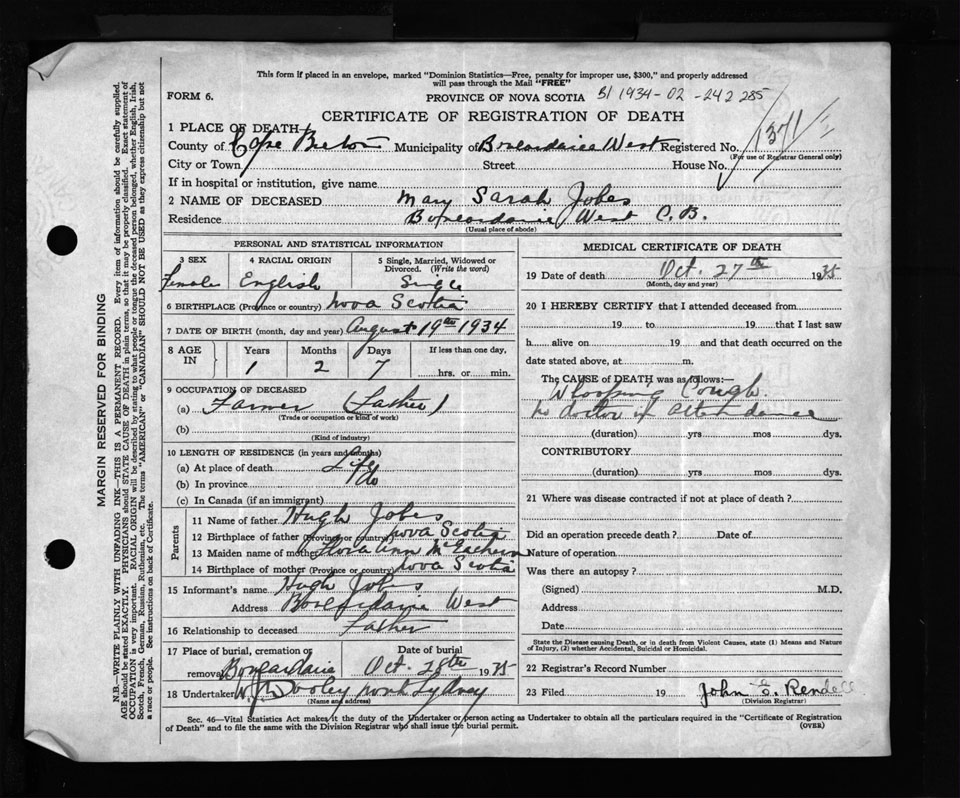 This form if placed in an envelope, marked "Dominion Statistics—Free, penalty for improper use, $300," and properly addressed
will pass through the Mail "FREE"
FORM 6.
PROVINCE OF NOVA SCOTIA B1 1934-02-242 285
CERTIFICATE OF REGISTRATION OF DEATH
1 PLACE OF DEATH
County of Cape Breton Municipality of West Registered No. 1371
(For use of Registrar General only)
City or Town Street House No.
If in hospital or institution, give name
2 NAME OF DECEASED Mary Sarah Jobes
Residence West C.B.
(Usual place of abode)
PERSONAL AND STATISTICAL INFORMATION
3 SEX 4 RACIAL ORIGIN 5 Single, Married, Widowed or Divorced. (Write the word)
Female English Single
6 BIRTHPLACE (Province or country) Nova Scotia
7 DATE OF BIRTH (month, day and year) August 19th 1934
8 AGE IN Years Months Days If less than one day,
1 2 7 hrs. or min.
9 OCCUPATION OF DECEASED
(a) Farmer (Father)
(Trade or occupation or kind of work)
(b)
(Kind of industry)
10 LENGTH OF RESIDENCE (in years and months)
(a) At place of death Life
(b) In province do
(c) In Canada (if an immigrant)
Parents
11 Name of father Hugh Jobes
12 Birthplace of father (Province or country) Nova Scotia
13 Maiden name of mother Flora Ann McEachern
14 Birthplace of mother (Province or country) Nova Scotia
15 Informant's name Hugh Jobes
Address West
16 Relationship to deceased Father
17 Place of burial, cremation or removal Date of burial
Oct. 28th 1935
18 Undertaker W. J. Dooley North Sydney
(Name and address)
MEDICAL CERTIFICATE OF DEATH
19 Date of death Oct. 27th 1935
(Month, day and year)
20 I HEREBY CERTIFY that I attended deceased from
19 to 19 that I last saw
h alive on 19 and that death occurred on the
date stated above, at m.
The CAUSE of DEATH was as follows:—
Whooping Cough
No doctor in attendance
(duration) yrs mos dys.
CONTRIBUTORY
(duration) yrs mos dys.
21 Where was disease contracted if not at place of death?
Did an operation precede death? Date of
Nature of operation
Was there an autopsy?
(Signed) M.D.
Address
Date
State the Disease causing Death, or in death from Violent Causes, state (1) Means and Nature
of Injury, (2) whether Accidental, Suicidal or Homicidal.
22 Registrar's Record Number
23 Filed 19 John E. Rendell
(Division Registrar)
Sec. 46—Vital Statistics Act makes it the duty of the Undertaker or person acting as Undertaker to obtain all the particulars required in the "Certificate of Registration
of Death" and to file the same with the Division Registrar who shall issue the burial permit. (OVER)
MARGIN RESERVED FOR BINDING
N.B.—WRITE PLAINLY WITH UNFADING INK—THIS IS A PERMANENT RECORD. Every item of information should be carefully supplied.
AGE should be stated EXACTLY. PHYSICIANS should STATE CAUSE OF DEATH in plain terms, so that it may be properly classified. Exact statement of
OCCUPATION is very important. RACIAL ORIGIN will be described by stating to what people or tongue the deceased person belonged, whether English, Irish,
Scotch, French, German, Russian, Ruthenian, etc. The terms "AMERICAN" or "CANADIAN" SHOULD NOT BE USED as they express citizenship but not
a race or people. See instructions on back of Certificate.